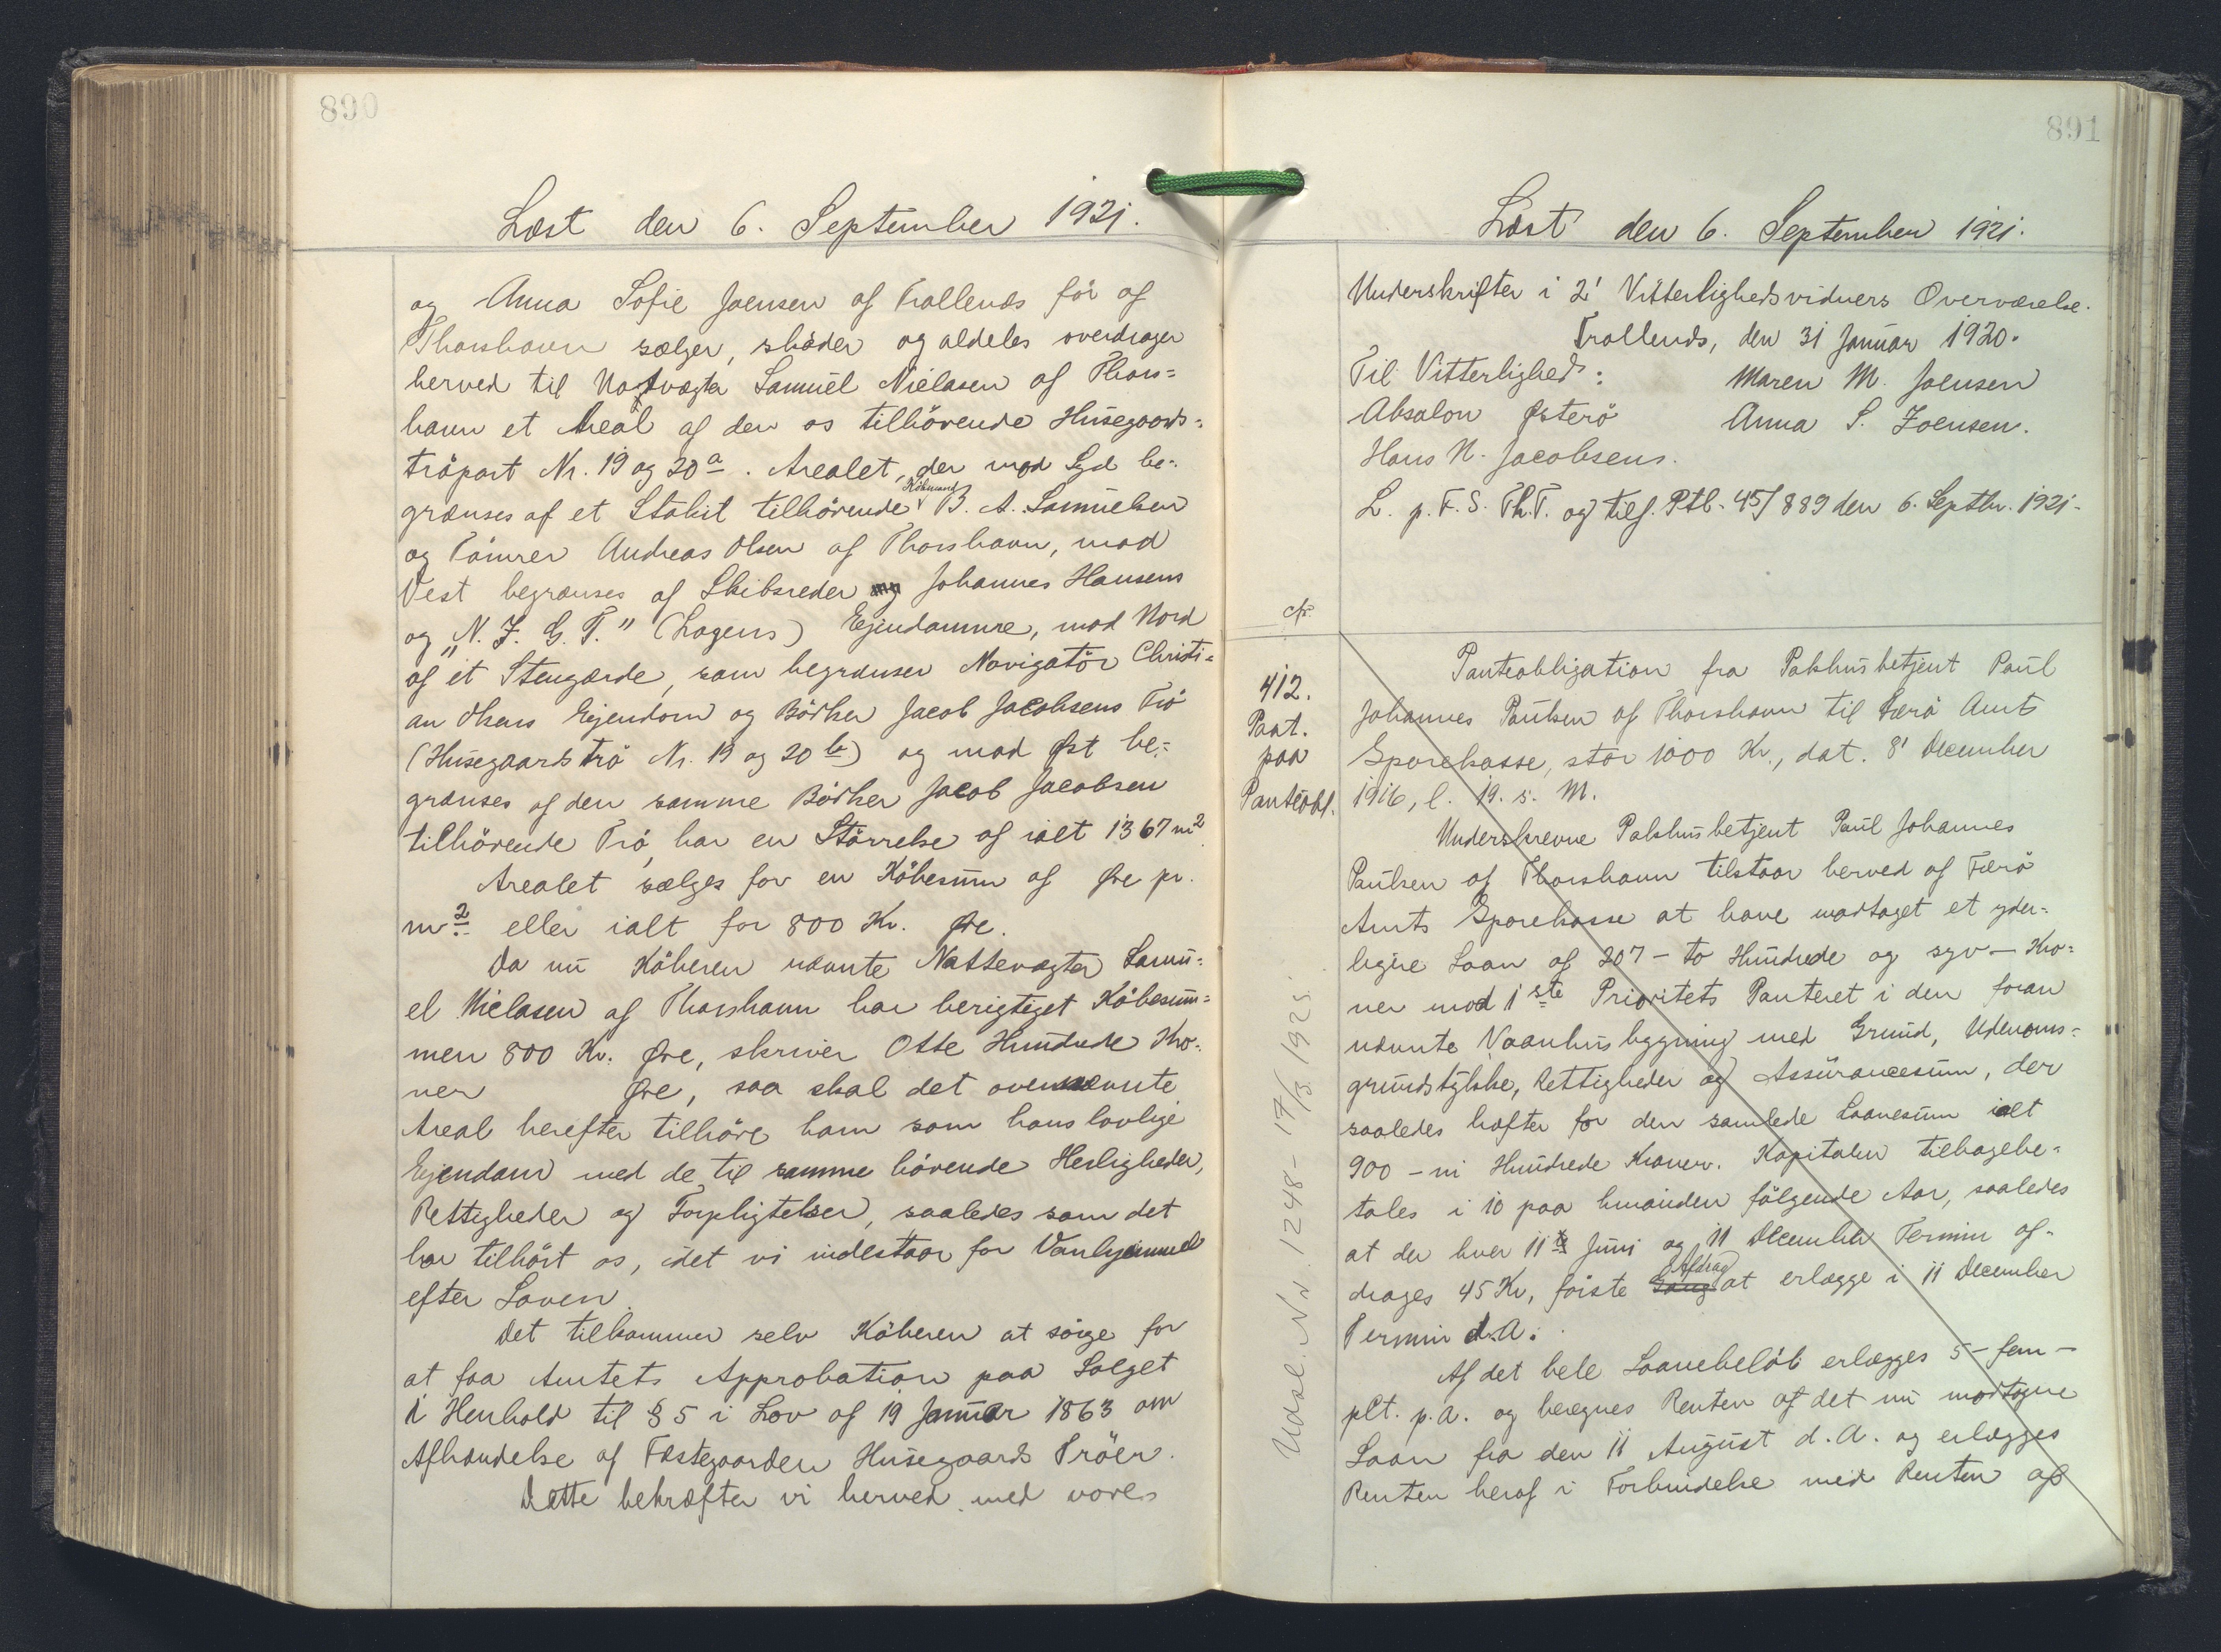 890
Læst den 6. September 1921.
og Anna Sofie Joensen af Trollenæs før af
Thorshavn sælger, skøder og aldeles overdrager
herved til Natvægter Samuel Nielasen af Thors=
havn et Areal af den os tilhörende Husegaards=
tröpart Nr. 19 og 20a. Arealet, der mod Syd be=
grænses af et Stakit tilhörende Købmand B. A. Samuelsen
og Tömrer Andreas Olsen af Thorshavn, mod
Vest begrænses af Skibsreder Johannes Hansens
og "N. J. G. T." (Logens) Ejendomme, mod Nord
af et Stengærde, som begrænser Navigatör Christi=
an Olsens Ejendom og Bödker Jacob Jacobsens Trö
(Husegaards trö Nr. 19 og 20b) og mod Øst be=
grænses af den samme Bödker Jacob Jacobsen
tilhörende Trö, har en Störrelse af ialt 1367 m2.
Arealet sælges for en Köbesum af Øre pr.
m2. eller ialt for 800 Kr. Øre.
Da nu Köberen nævnte Nattevægter Samu=
el Nielasen af Thorshavn har berigtiget Köbesum=
men 800 Kr. Øre, skriver Otte Hundrede Kro=
ner Øre, saa skal det ovennævnte
Areal herefter tilhöre ham som hans lovlige
Ejendom med de til samme hörende Herligheder,
Rettigheder og Forpligtelser, saaledes som det
har tilhört os, idet vi indestaar for Vanhjemmel
efter Loven.
Det tilkommer selv Köberen at sörge for
at faa Amtets Approbation paa Salget
i Henhold til § 5 i Lov af 19 Januar 1863 om
Afhændelse af Fæstegaarden Husegaards Tröer.
Dette bekræfter vi herved med vores
891
Læst den 6. September 1921.
Underskrifter i 2' Vitterlighedsvidners Overværelse.
Trollenæs, den 31 Januar 1920.
Til Vitterlighed: Maren M. Joensen
Absalon Østerö Anna S. Joensen.
Hans N. Jacobsens.
L. p. F. S. Th. T. og tilf. Ptb. 45/889 den 6. Septbr. 1921.
A.
412.
Paat.
paa
Panteobl.
Panteobligation fra Pakhusbetjent Paul
Johannes Paulsen af Thorshavn til Færö Amts
Sparekasse, stor 1000 Kr., dat. 8' December
1916, l. 19. s. M.
Underskrevne Pakhusbetjent Paul Johannes
Paulsen af Thorshavn tilstaar herved af Færö
Amts Sparekasse at have modtaget et yder=
ligere Laan af 207 - to Hundrede og syv - Kro=
ner mod 1ste Prioritets Panteret i den foran
nævnte Vaanhusbygning med Grund, Udenoms=
grundstykke, Rettigheder og Assurancesum, der
saaledes hæfter for den samlede Laanesum ialt
900 - ni Hundrede Kroner. Kapitalen tilbagebe=
tales i 10 paa hinanden fölgende Aar, saaledes
at der hver 11te Juni og 11 December Termin af=
drages 45 Kr, förste Gang Afdrag at erlægge i 11 December
Termin d. A.
Af det hele Laanebelöb erlægges 5 - fem -
pCt. p. a. og beregnes Renten af det nu modtagne
Laan fra den 11 August d. A. og erlægges
Renten heraf i Forbindelse med Renten af
Udsl. Nr. 1248 - 17/3 1925.